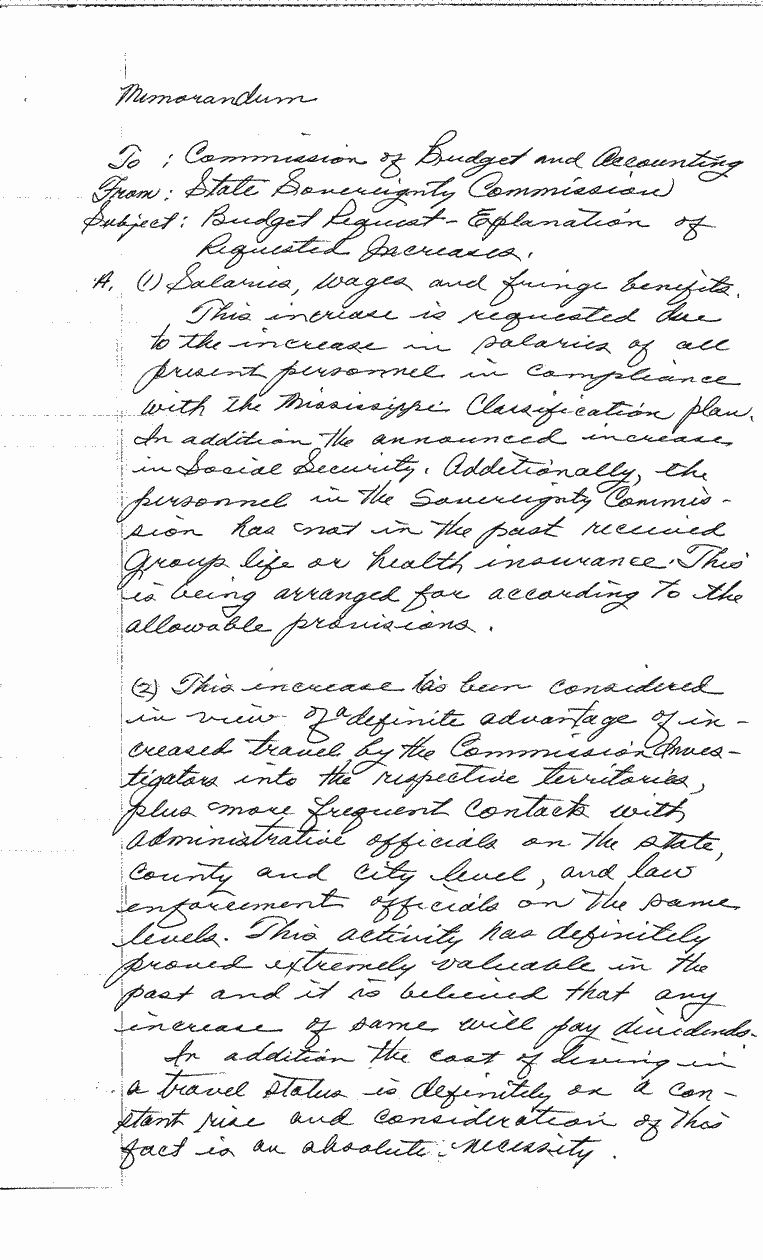 Memorandum
To : Commission of Budget and Accounting
From : State Sovereignty Commission
Subject : Budget Request - Explanation of
Requested Increases.
A. (1) Salaries, wages and fringe benefits.
This increase is requested due
to the increase in salaries of all
present personnel in compliance
with the Mississippi Classification plan.
In addition the announced increase
in Social Security. Additionally, the
personnel in the Sovereignty Commis-
sion has not in the past received
Group life or health insurance. This
is being arranged for according to the
allowable provisions.
(2) This increase has been considered
in view of a definite advantage of in-
creased travel by the Commission Inves-
tigators into the respective territories,
plus more frequent contacts with
administrative officials on the state,
county and city level, and law
enforcement officials on the same
levels. This activity has definitely
proved extremely valuable in the
past and it is believed that any
increase of same will pay dividends.
In addition the cost of living in
a travel status is definitely on a con-
stant rise and consideration of this
fact is an absolute necessity.